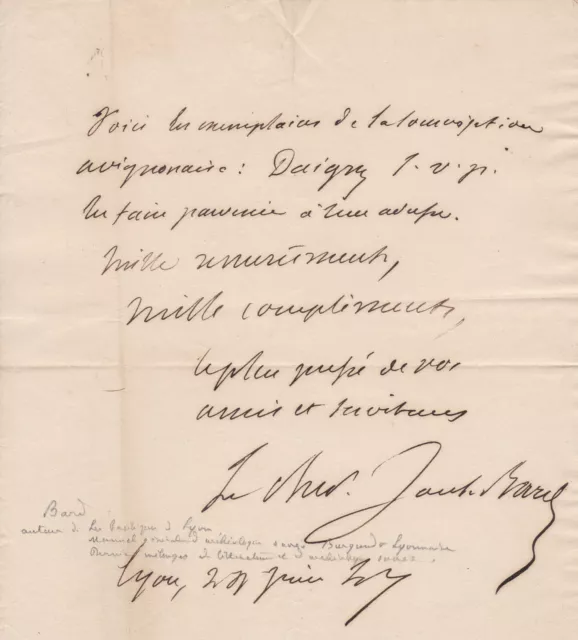 Voici les exemplaires de la souscription
avignonaise : Daigny s. v. p.
les faire parvenir à leur adresse.
Mille remerciements,
Mille compliments,
le plus pressé de vos
amis et serviteurs
Le Cher. Joseph Bard
Bard
auteur de Les de Lyon
manuel d'archéologie Burgundo Lyonnaise
mélanges de littérature et d'archéologie
Lyon, juin